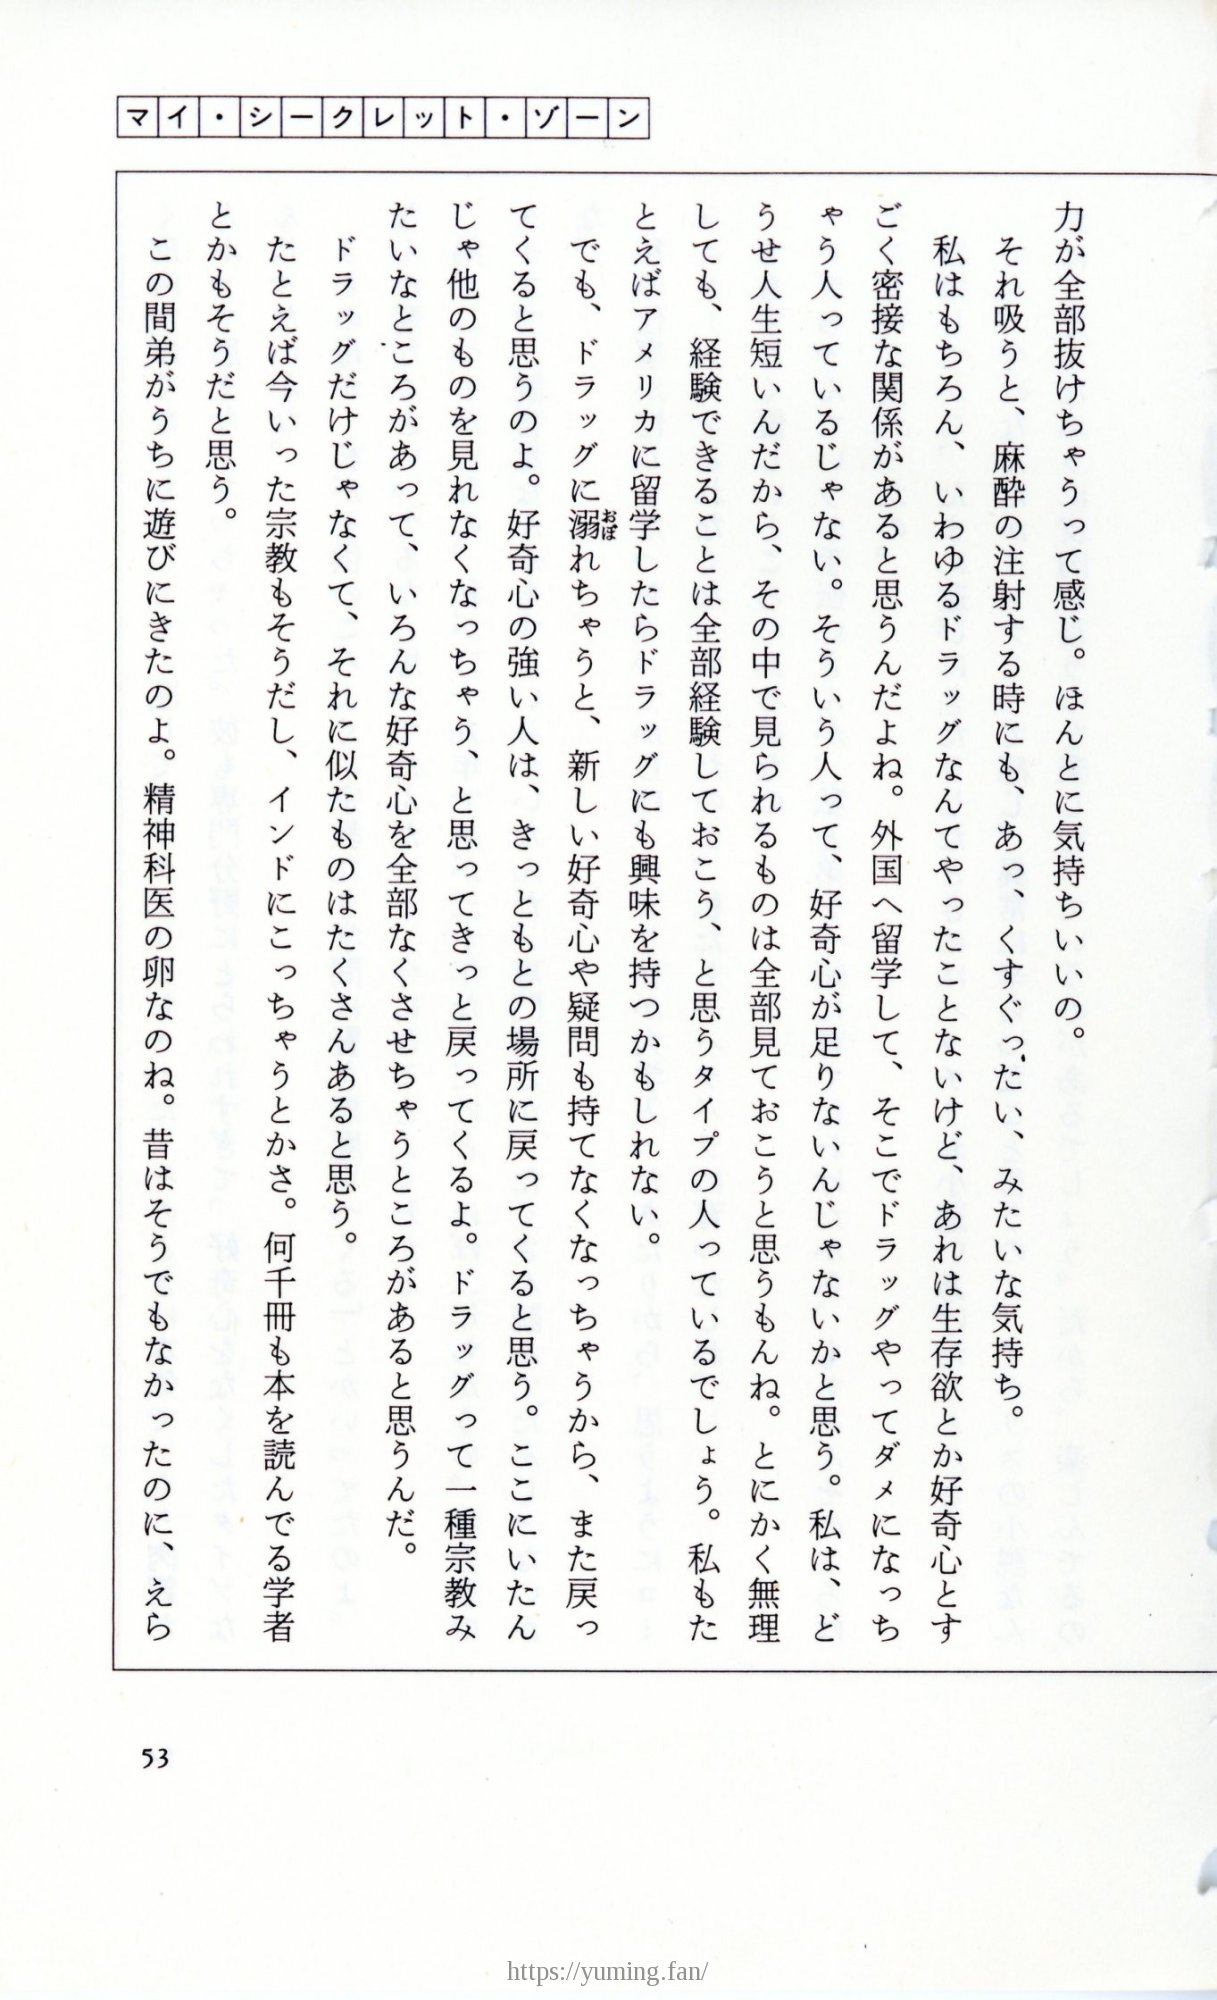 マイ・シークレット・ゾーン
力が全部抜けちゃうって感じ。ほんとに気持ちいいの。
それ吸うと、麻酔の注射する時にも、あっ、くすぐったい、みたいな気持ち。
私はもちろん、いわゆるドラッグなんてやったことないけど、あれは生存欲とか好奇心とす
ごく密接な関係があると思うんだよね。外国へ留学して、そこでドラッグやってダメになっち
ゃう人っているじゃない。そういう人って、好奇心が足りないんじゃないかと思う。私は、ど
うせ人生短いんだから、その中で見られるものは全部見ておこうと思うもんね。とにかく無理
しても、経験できることは全部経験しておこう、と思うタイプの人っているでしょう。私もた
とえばアメリカに留学したらドラッグにも興味を持つかもしれない。
でも、ドラッグに溺おぼれちゃうと、新しい好奇心や疑問も持てなくなっちゃうから、また戻っ
てくると思うのよ。好奇心の強い人は、きっともとの場所に戻ってくると思う。ここにいたん
じゃ他のものを見れなくなっちゃう、と思ってきっと戻ってくるよ。ドラッグって一種宗教み
たいなところがあって、いろんな好奇心を全部なくさせちゃうところがあると思うんだ。
ドラッグだけじゃなくて、それに似たものはたくさんあると思う。
たとえば今いった宗教もそうだし、インドにこっちゃうとかさ。何千冊も本を読んでる学者
とかもそうだと思う。
この間弟がうちに遊びにきたのよ。精神科医の卵なのね。昔はそうでもなかったのに、えら
53
https://yuming.fan/